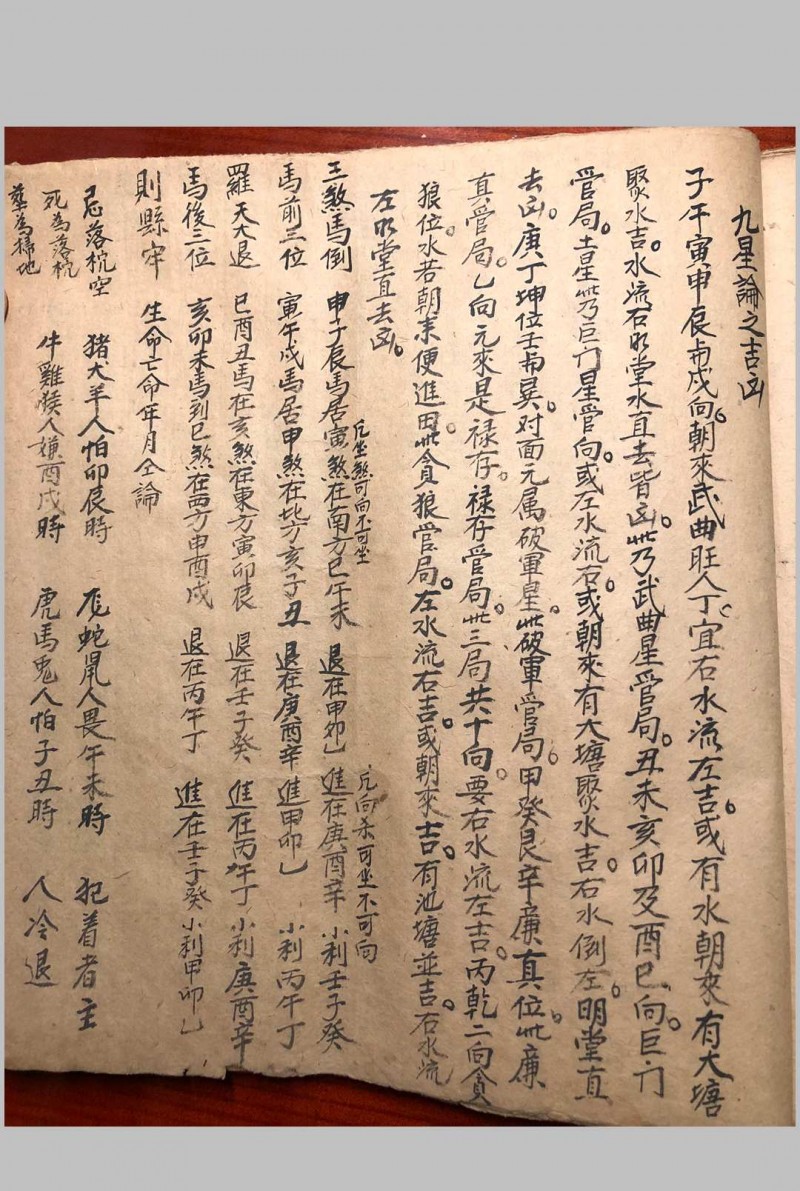 九星論之吉凶
子午寅申辰戌向。朝來武曲旺人丁。宜右水流左吉。或有水朝來有大塘
聚水吉。水流右明堂水直去皆凶。此乃武曲星管局。丑未亥卯及酉巳向。巨门
管局。吉星此乃巨门星管向。或左水流右。或朝來有大塘聚水吉。右水倒左。明堂直
去凶。庚丁坤位壬與巽。对面元属破軍星。此破軍管局。甲癸艮辛廉真位。此廉
真管局。乙向元來是禄存。禄存管局。此三局共十向。要右水流左吉。丙乾二向貪
狼位。水若朝來便進田。此貪狼管局。左水流右吉。或朝來吉。有池塘並吉。右水流
左明堂直去凶。
凡坐煞可向不可坐
凡向杀可坐不可向
三煞馬倒 申子辰馬居寅煞在南方巳午未 退在甲卯乙 進在庚酉辛 小利壬子癸
馬前三位 寅午戌馬居申煞在北方亥子丑 退在庚酉辛 進甲卯乙 小利丙午丁
羅天大退 巳酉丑馬在亥煞在東方寅卯辰 退在壬子癸 進在丙午丁 小利庚酉辛
馬後三位 亥卯未馬到巳煞在西方申酉戌 退在丙午丁 進在壬子癸 小利甲卯乙
則縣牢 生命亡命年月仝論
忌落枕空 猪犬羊人怕卯辰時 龙蛇鼠人畏午未時 犯着者主
死為落枕 牛雞猴人嫌酉戌時 虎馬兎人怕子丑時 人冷退
葬為掃地